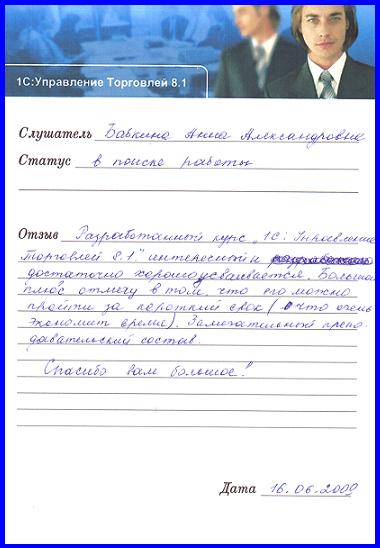 1С:Управление Торговлей 8.1
Слушатель Бабкина Анна Александровна
Статус в поиске работы
Отзыв Разработанный курс „1С: Управление
Торговлей 8.1" интересный и
достаточно хорошо усваивается. Большой
плюс отмечу в том, что его можно
пройти за короткий срок (что очень
экономит время). Замечательный препо
давательский состав.
Спасибо вам большое!
Дата 16.06.2009